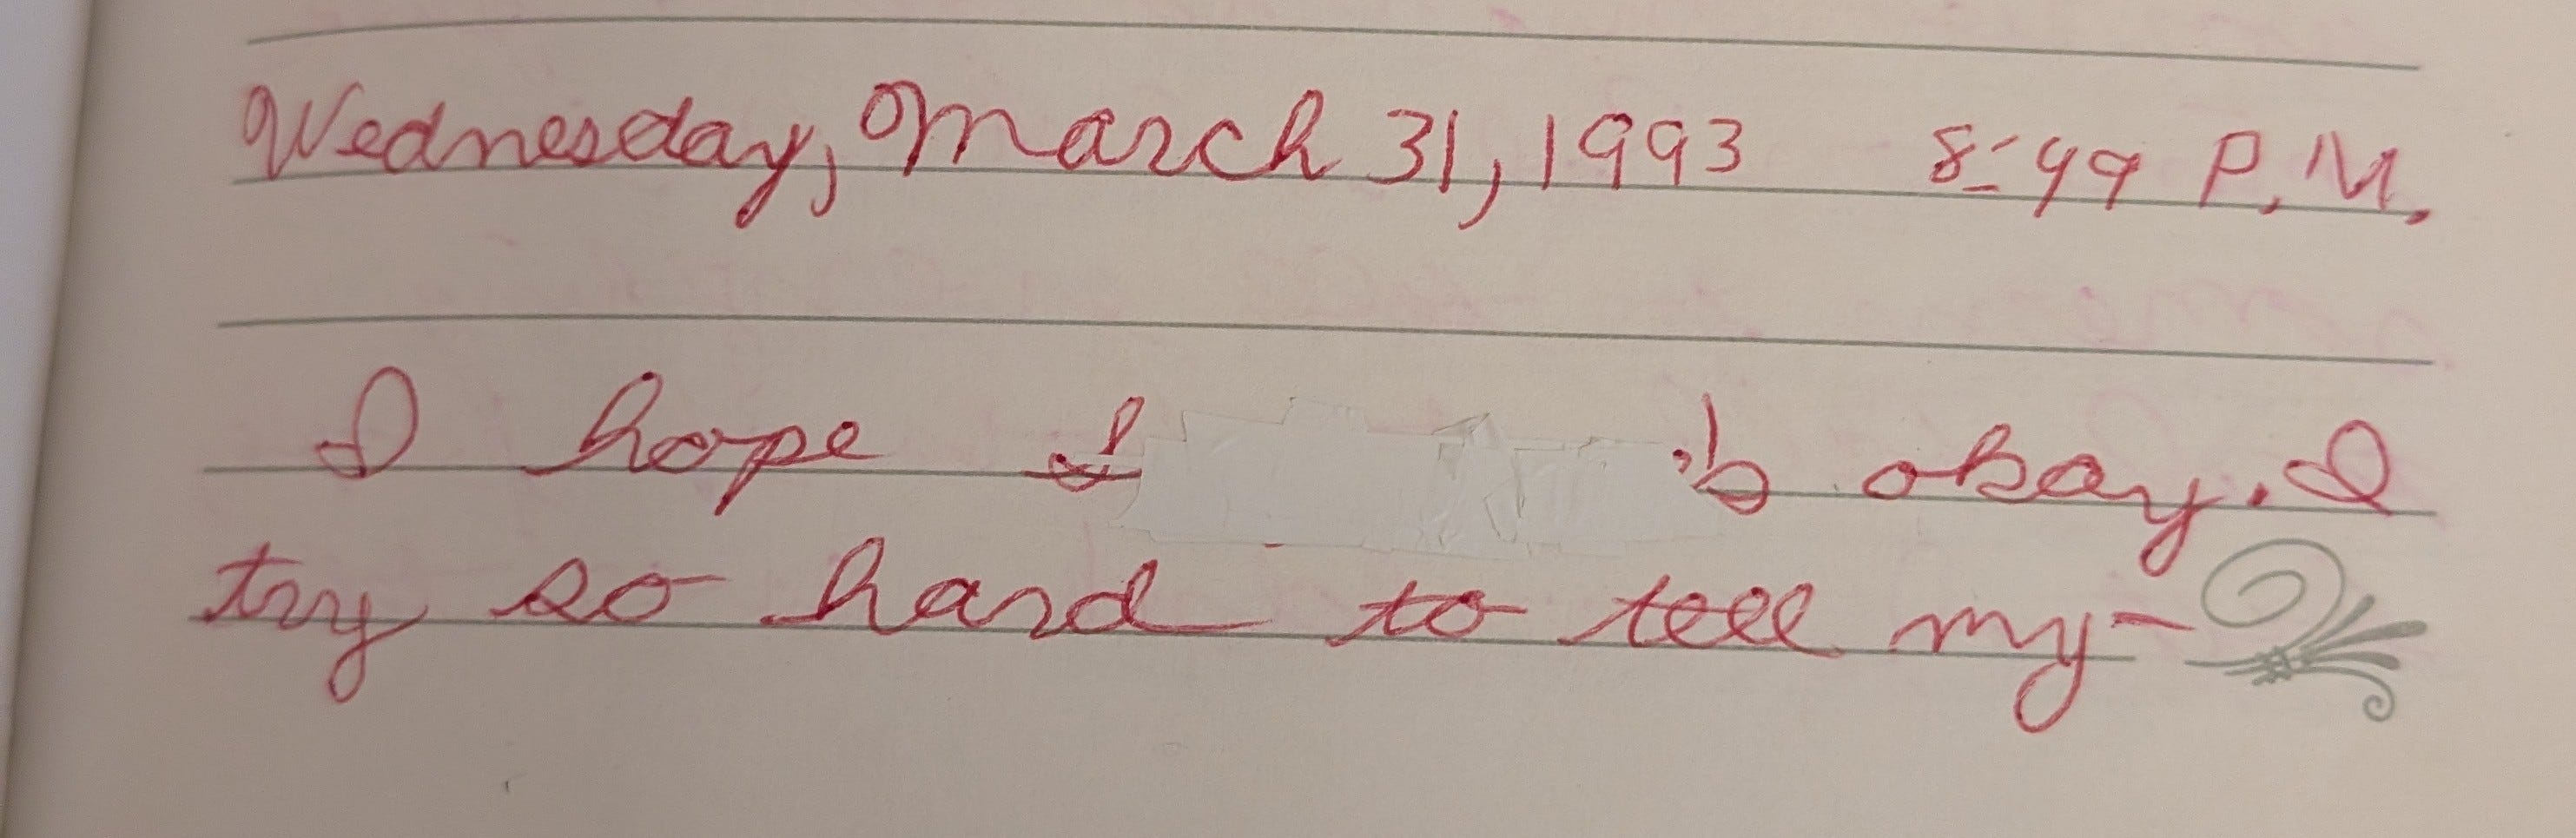 Wednesday, March 31, 1993 8:49 P.M.
I hope is okay. I
try so hard to tell my-